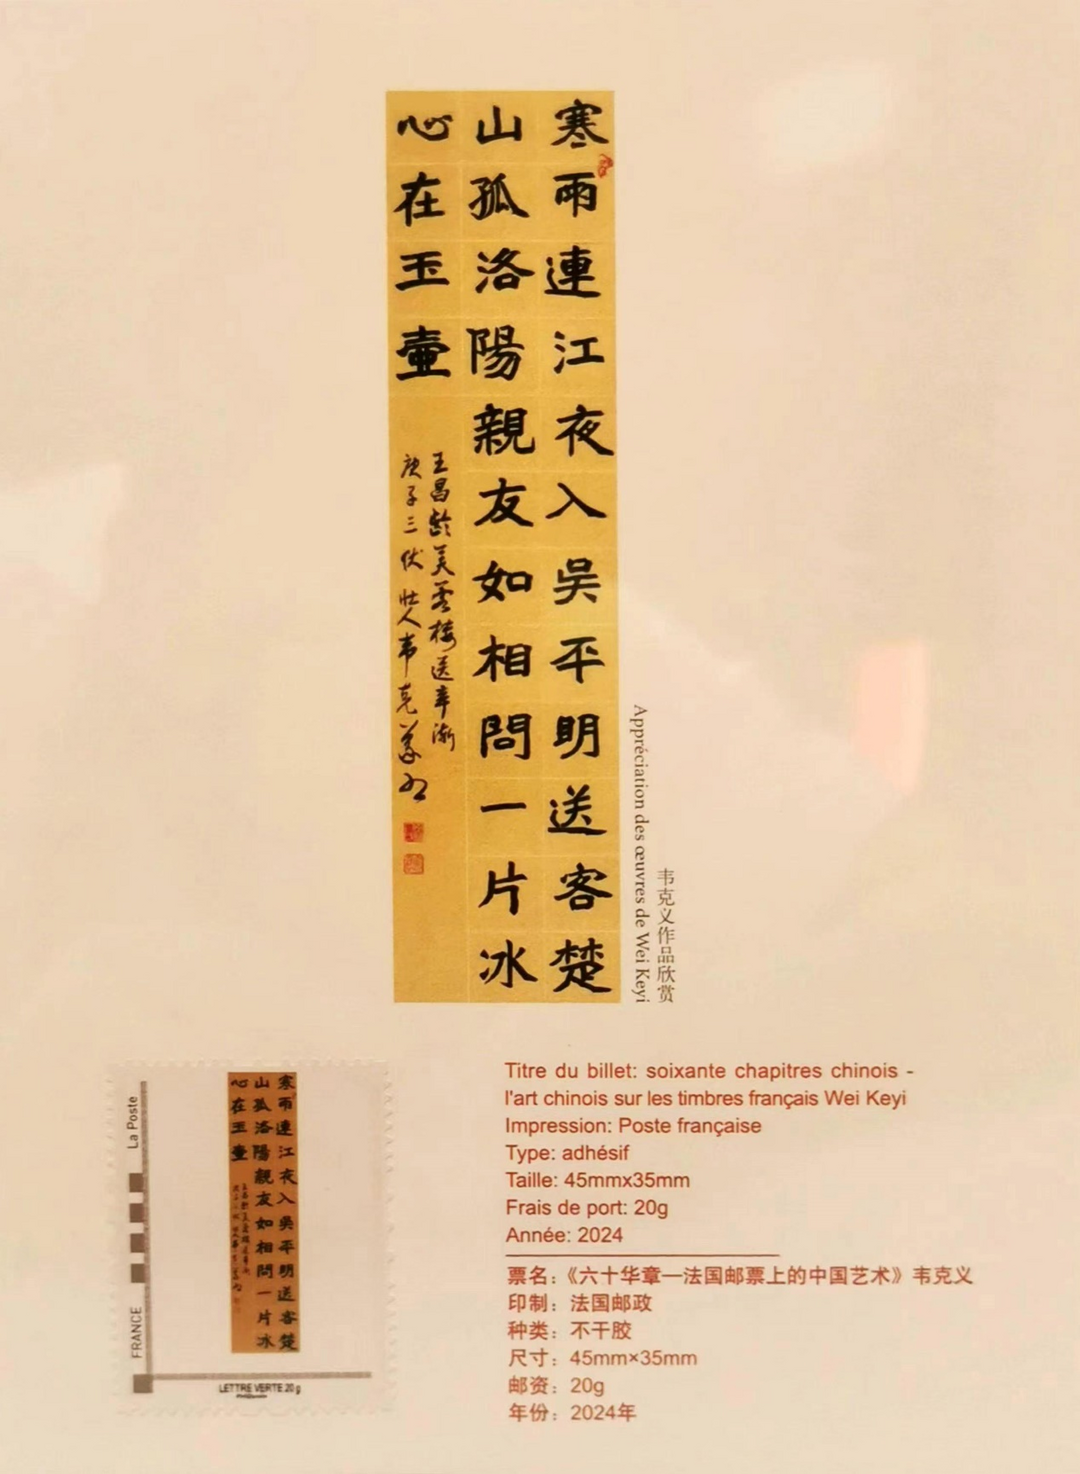 寒雨連江夜入吳平明送客楚
山孤洛陽親友如相問一片冰
心在玉壺
王昌齡芙蓉樓送辛漸
庚子三伏 壮人韦克義书
Appréciation des œuvres de Wei Keyi
韦克义作品欣赏
La Poste
FRANCE
寒雨連江夜入吳平明送客楚
山孤洛陽親友如相問一片冰
心在玉壺
LETTRE VERTE 20 g
Titre du billet: soixante chapitres chinois -
l'art chinois sur les timbres français Wei Keyi
Impression: Poste française
Type: adhésif
Taille: 45mmx35mm
Frais de port: 20g
Année: 2024
票名：《六十华章—法国邮票上的中国艺术》韦克义
印制：法国邮政
种类：不干胶
尺寸：45mm×35mm
邮资：20g
年份：2024年